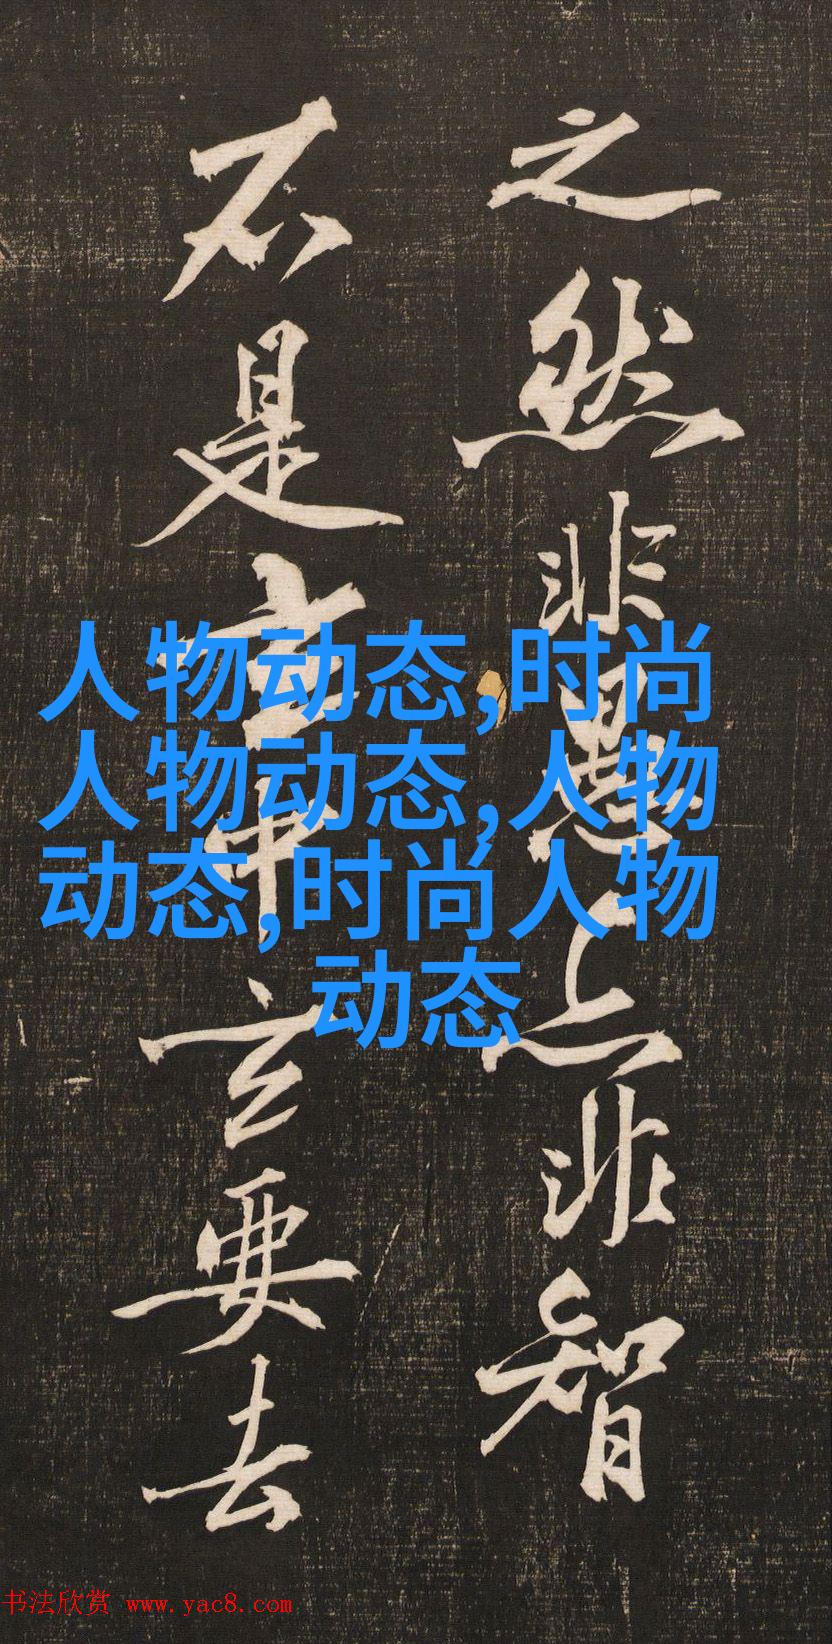 之然非愚上非智
不是玄中玄要去
人物动态,时尚
人物动态,人物
动态,时尚人物
动态
书法欣赏 www.yac8.com